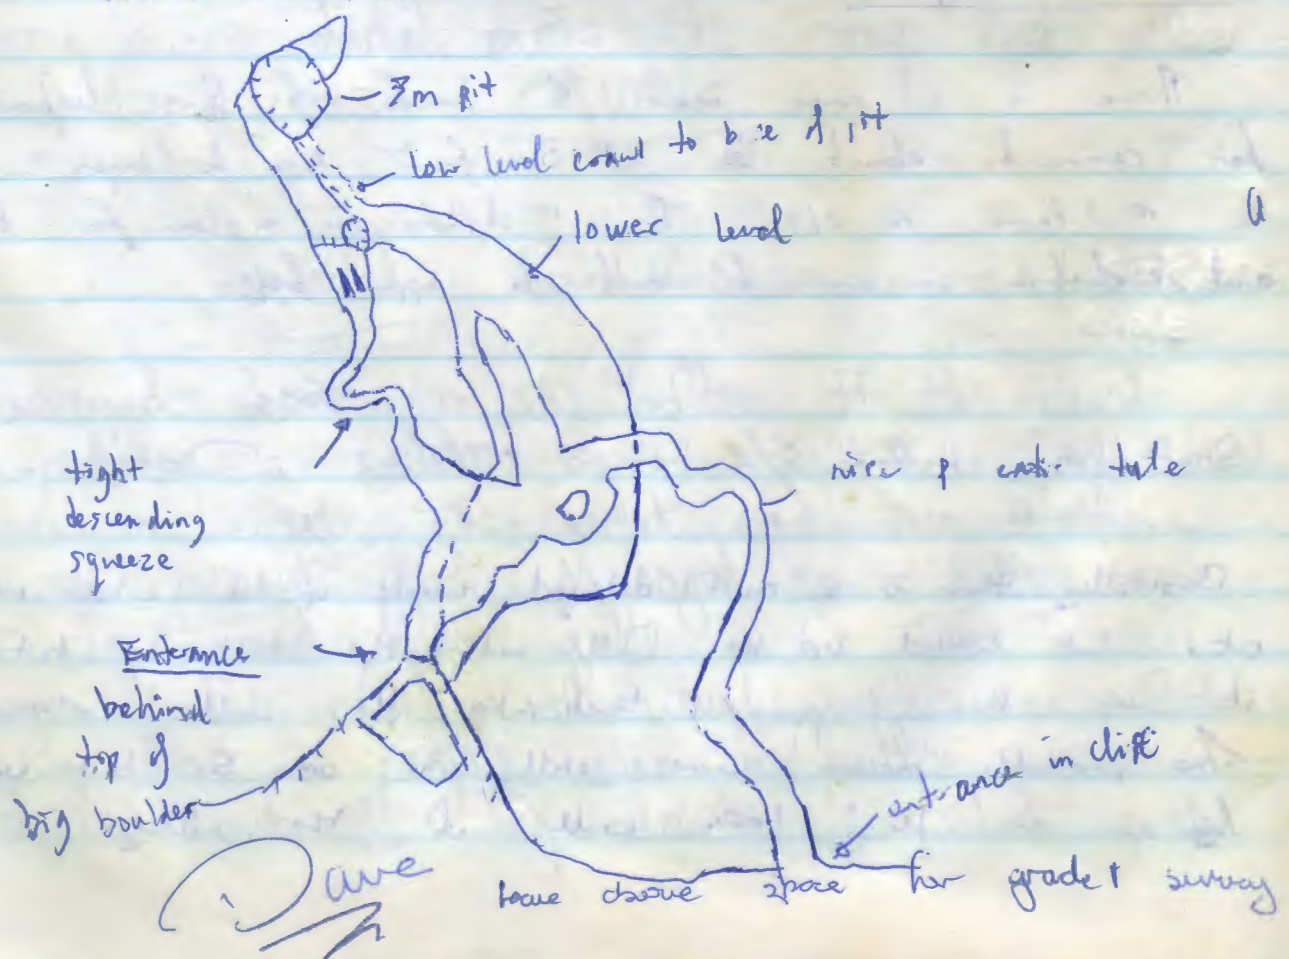 3m pit
low level crawl to base of pit
lower level
tight
descending
squeeze
nice phreatic tube
Entrance
behind
top of
big boulder
entrance in cliff
Dave
leave above space for grade 1 survey